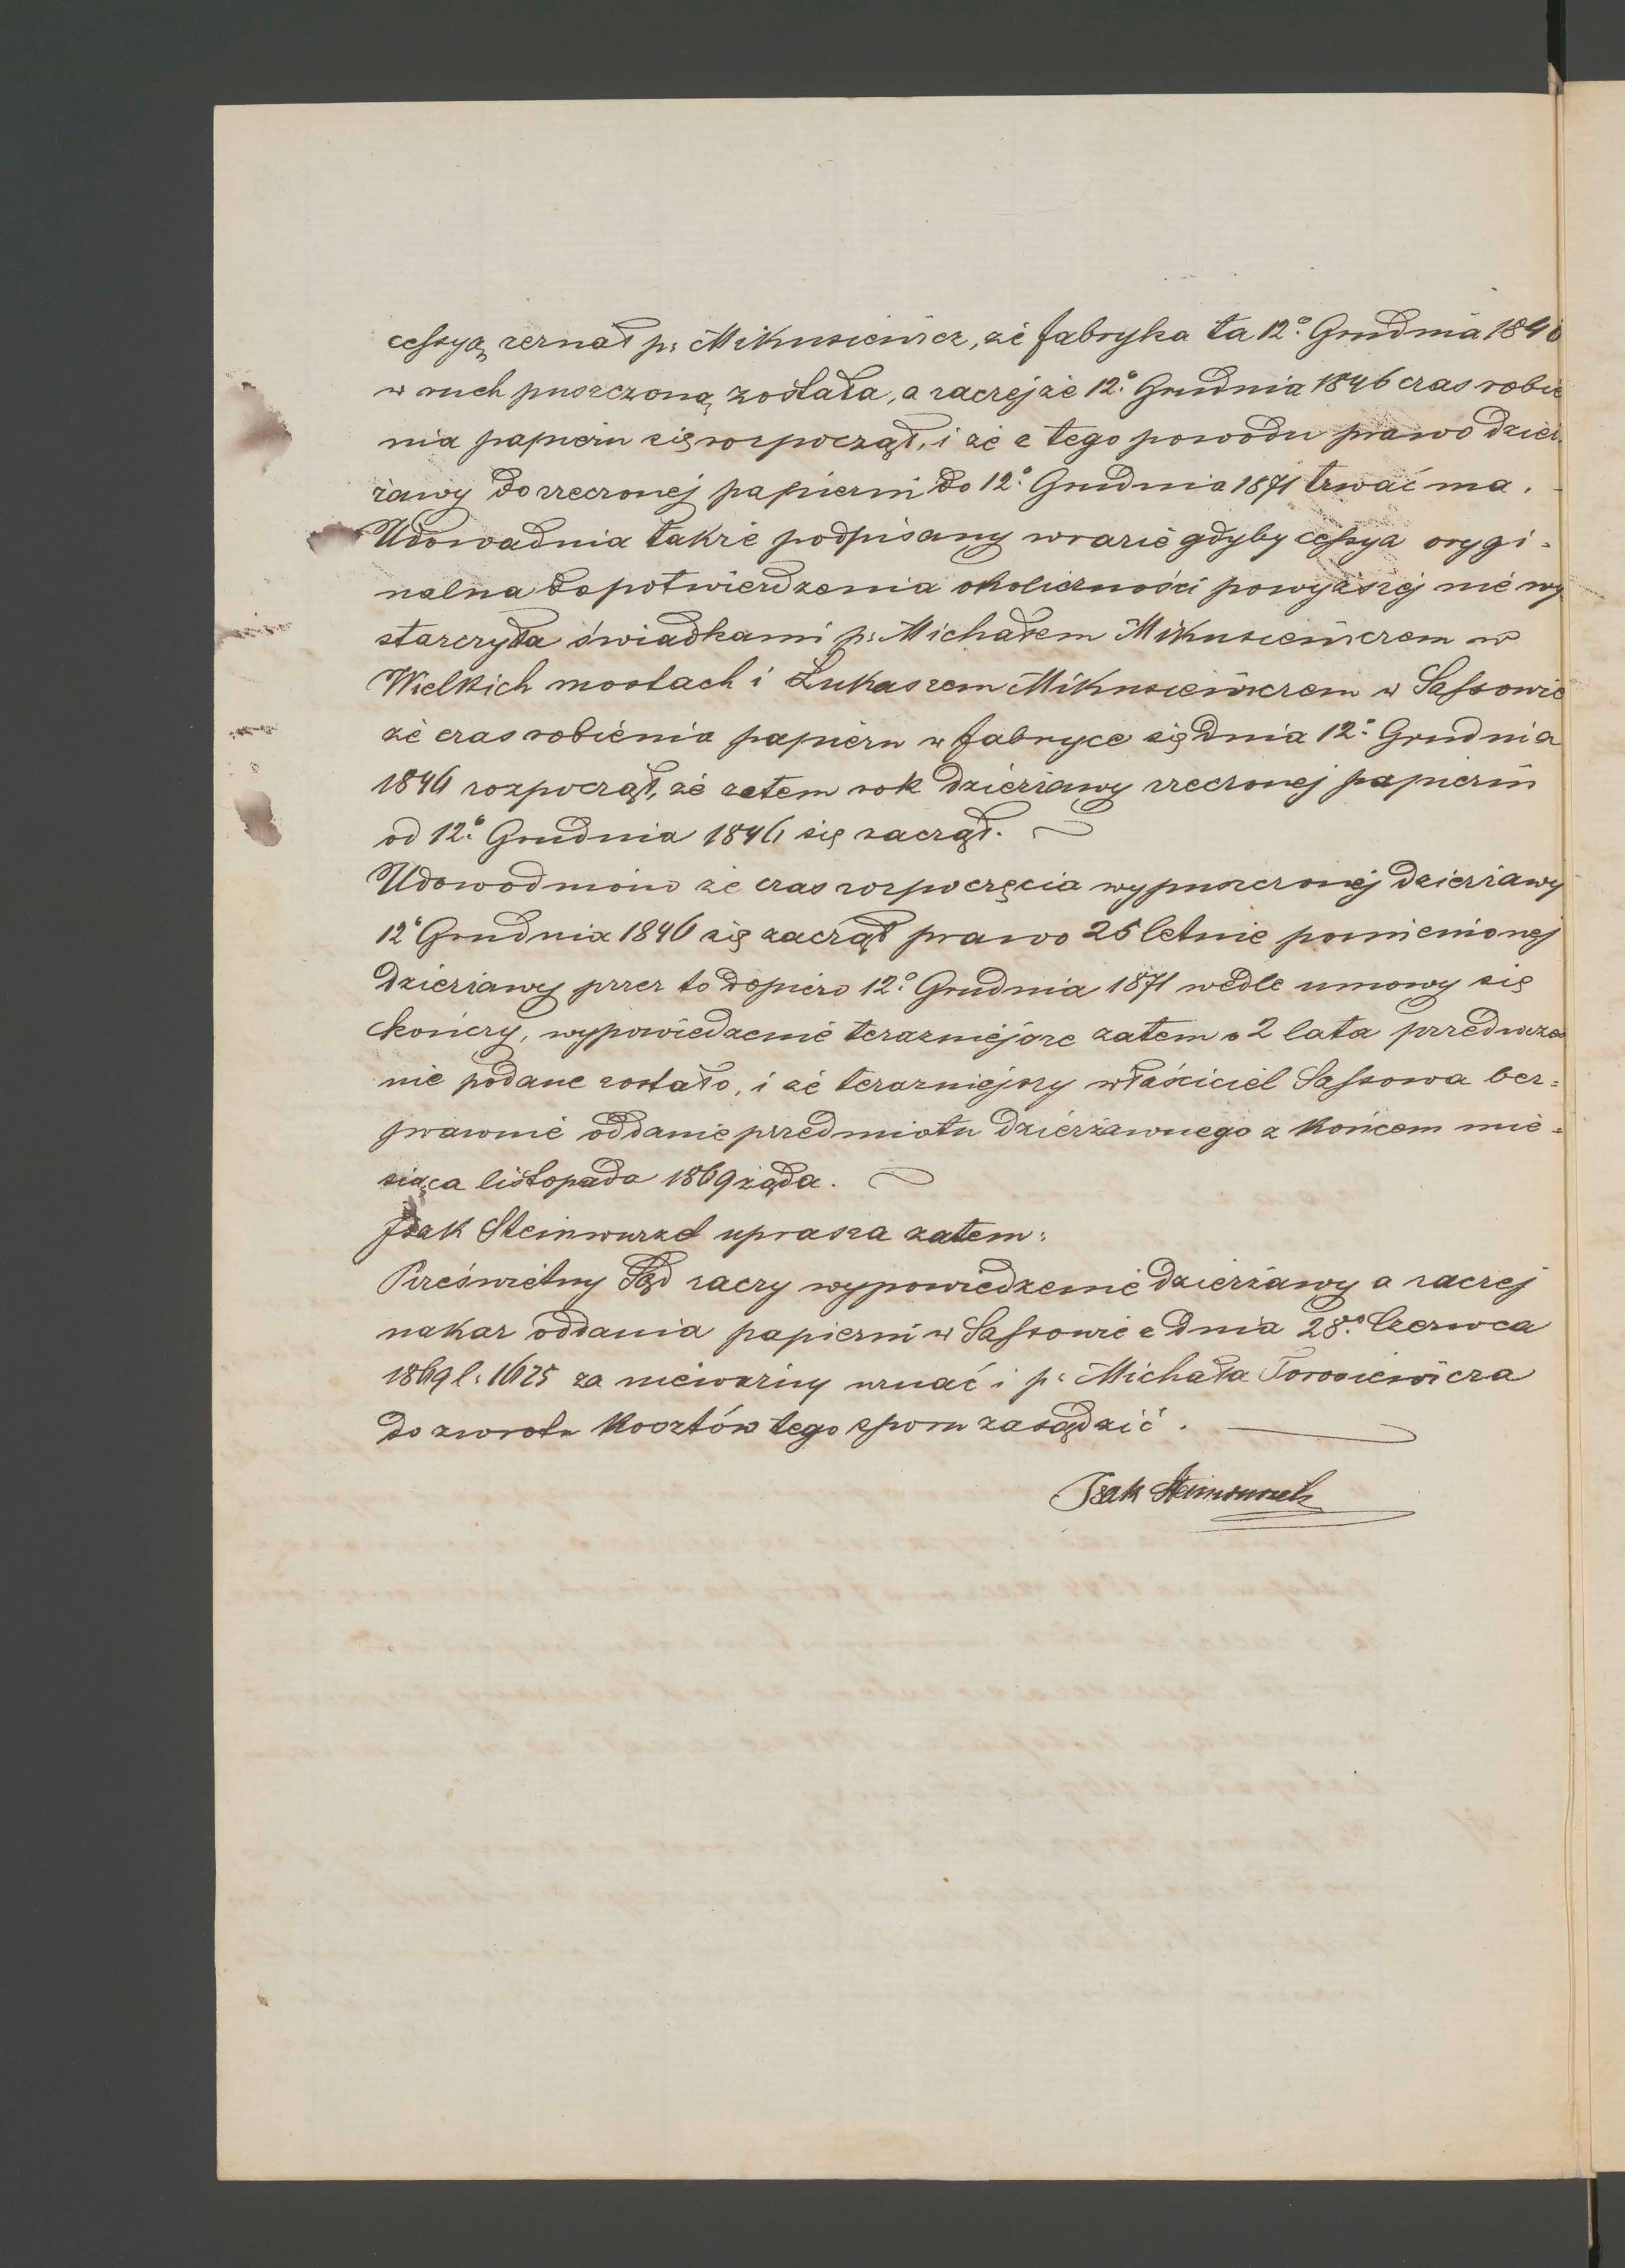 cessyą zeznał p: Mikusiewicz, że fabryka ta 12º Grudnia 1846
w ruch puszczoną została, a raczej że 12º Grudnia 1846 czas robie
nia papieru się rozpoczął, i że z tego powodu prawo dzier
żawy do rzeczonej papierni do 12º Grudnia 1871 trwać ma.
Udowadnia także podpisany w razie gdyby cessya orygi=
nalna do potwierdzenia okoliczności powyższej nie wy
starczyła świadkami p: Michałem Mikusiewiczem w
Wielkich mostach i Łukaszem Mikusiewiczem w Sassowie
że czas robienia papieru w fabryce się dnia 12º Grudnia
1846 rozpoczął, że zatem rok dzierżawy rzeczonej papierni
od 12º Grudnia 1846 się zaczął.
Udowodniono że czas rozpoczęcia wypuszczonej dzierżawy
12º Grudnia 1846 się zaczął prawo 25 letnie pomienionej
dzierżawy przez to dopiero 12º Grudnia 1871 wedle umowy się
kończy, wypowiedzenie terazniejsze zatem o 2 lata przedwcześ
nie podane zostało, i że terazniejszy właściciel Sassowa bez=
prawnie oddanie przedmiotu dzierżawnego z końcem mie=
siąca listopada 1869 żąda.
Izak Steinwurzel uprasza zatem:
Prześwietny Sąd raczy wypowiedzenie dzierżawy a raczej
nakaz oddania papierni w Sassowie z dnia 28º Czerwca
1869 l: 1625 za nieważny uznać i p: Michała Torosiewicza
do zwrotu kosztów tego sporu zasądzić.
Isak Steinwurzel